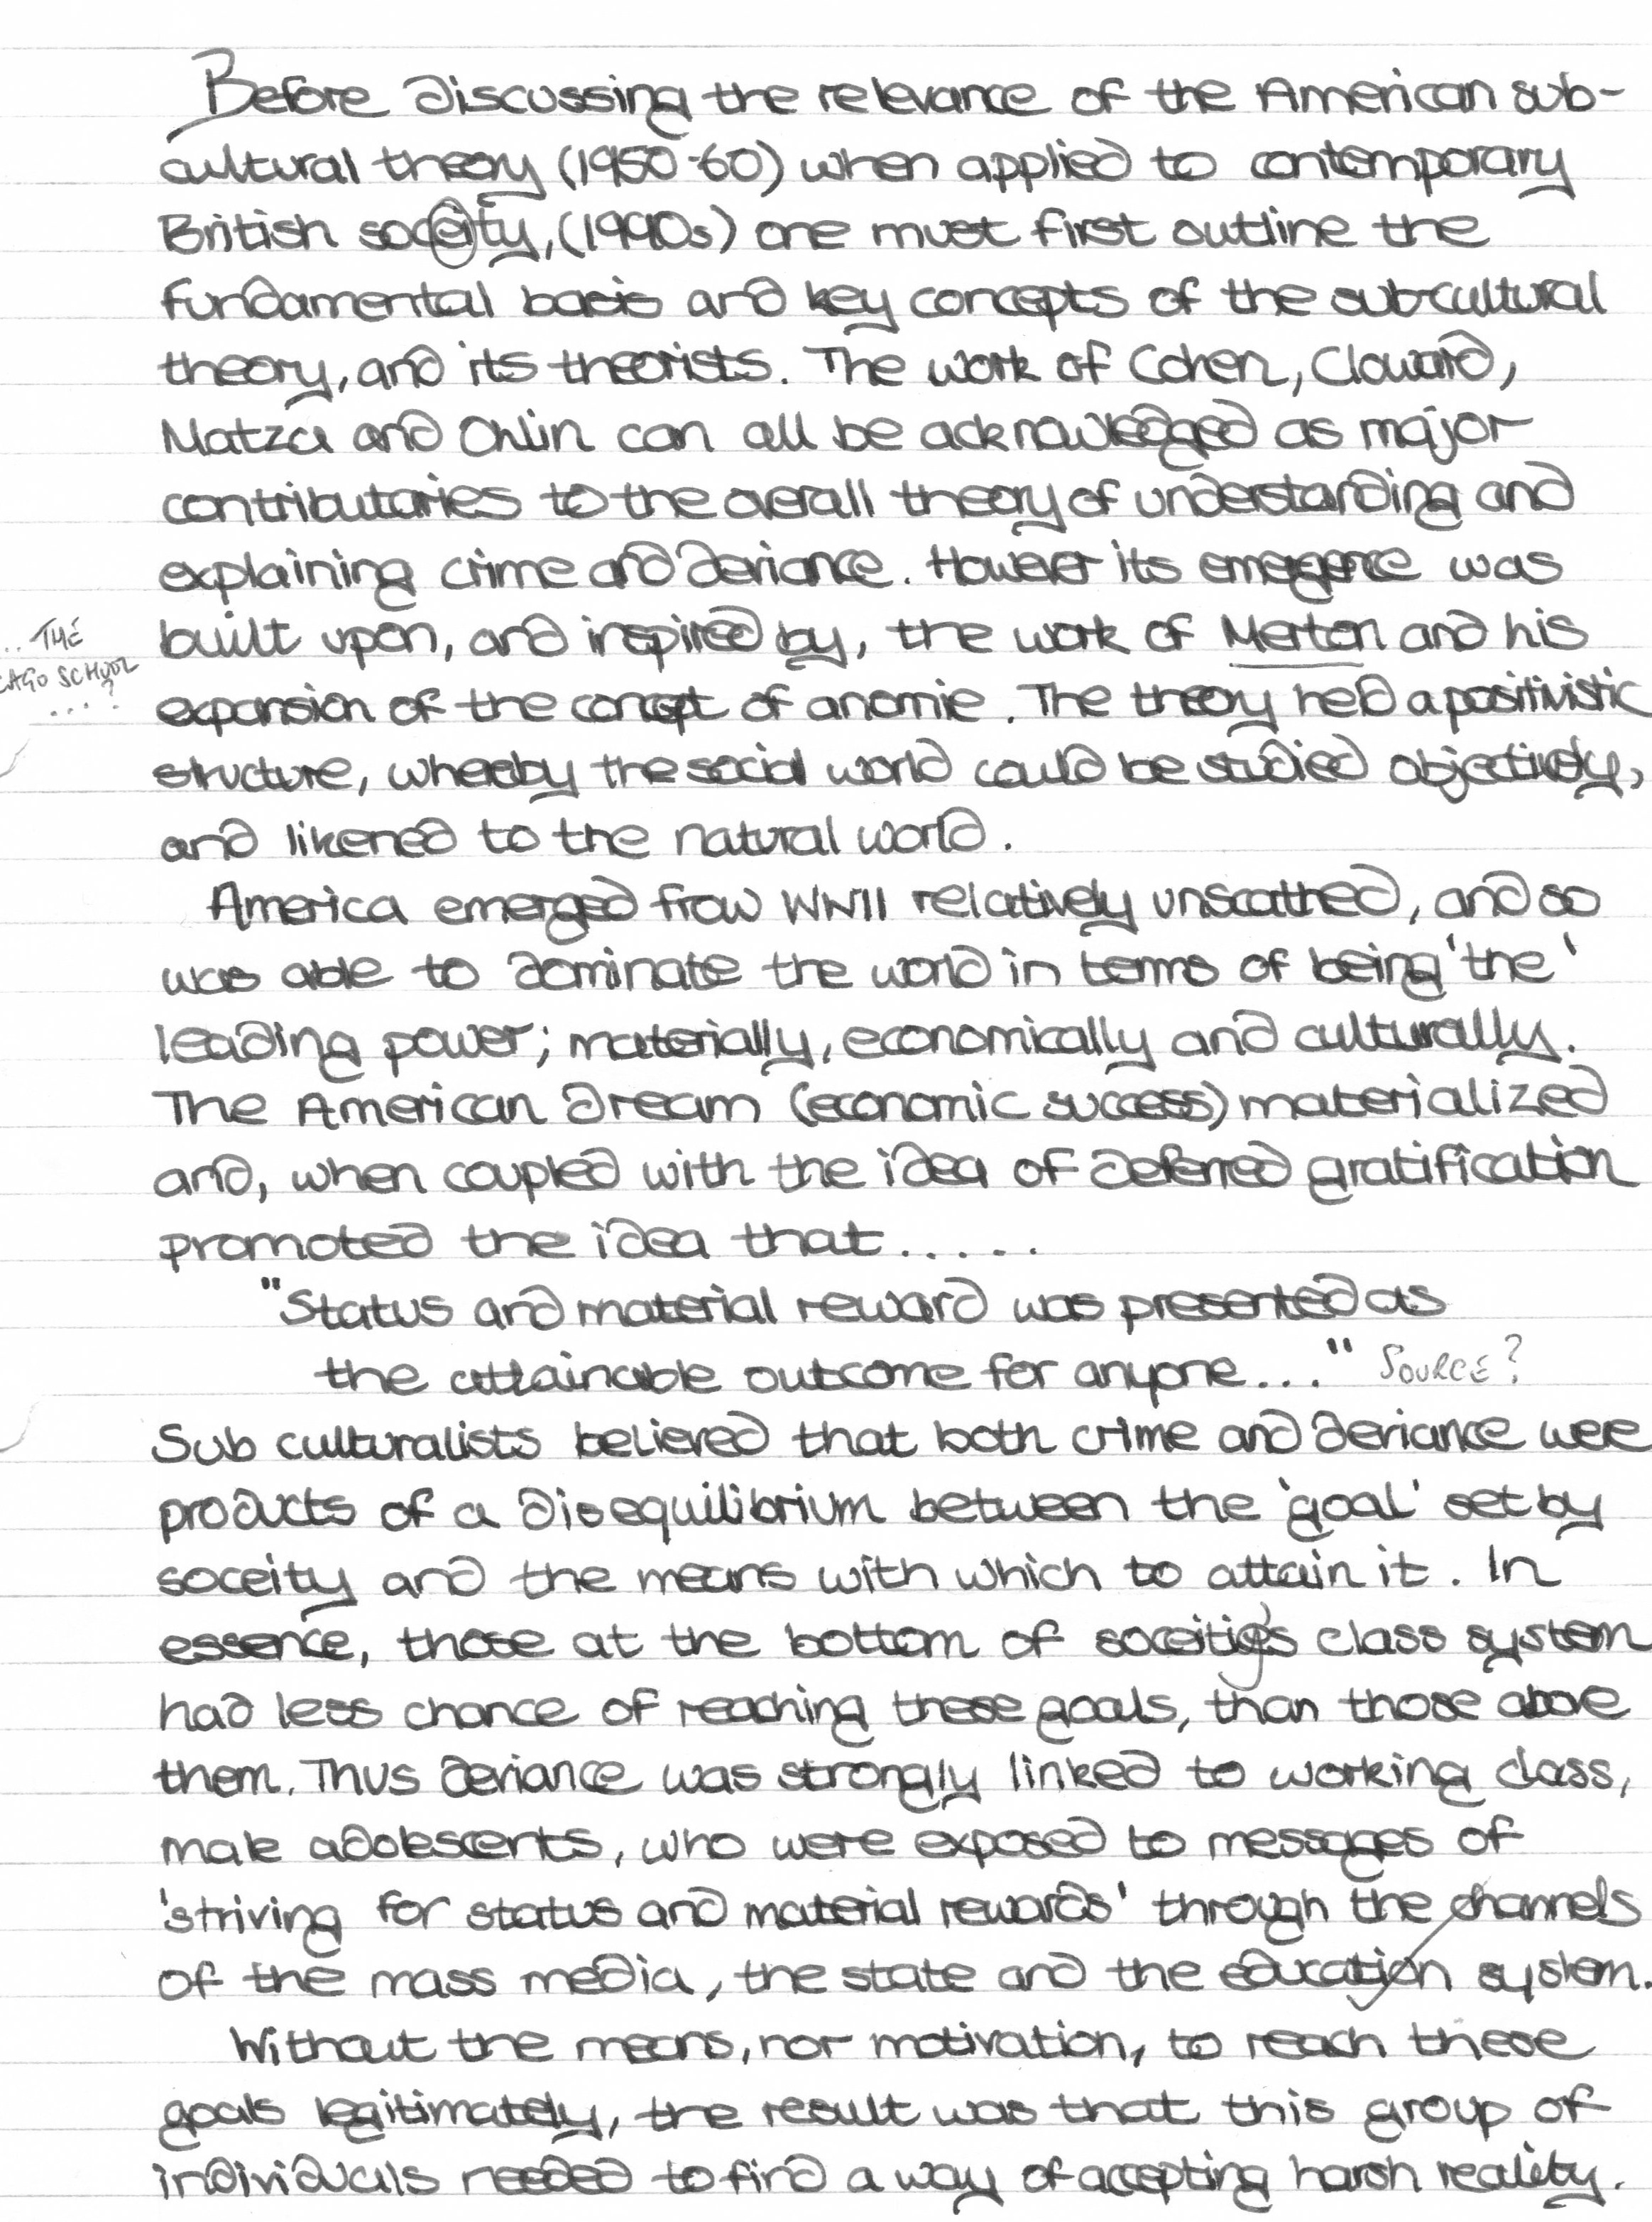 Before discussing the relevance of the American sub-
cultural theory (1950-60) when applied to contemporary
British soceity, (1990s) one must first outline the
fundamental basis and key concepts of the subcultural
theory, and its theorists. The work of Cohen, Cloward,
Matza and Ohlin can all be acknowledged as major
contributaries to the overall theory of understanding and
explaining crime and deviance. However its emergence was
... THE
built upon, and inspired by, the work of Merton and his
CAGO SCHOOL
...?
expansion of the concept of anomie. The theory held a positivistic
structure, whereby the social world could be studied objectively,
and likened to the natural world.
America emerged from WWII relatively unscathed, and so
was able to dominate the world in terms of being 'the'
leading power; materially, economically and culturally.
The American dream (economic success) materialized
and, when coupled with the idea of deferred gratification
promoted the idea that.....
"Status and material reward was presented as
the attainable outcome for anyone..." SOURCE?
Sub culturalists believed that both crime and deviance were
products of a disequilibrium between the 'goal' set by
soceity and the means with which to attain it. In
essence, those at the bottom of soceity's class system
had less chance of reaching these goals, than those above
them. Thus deviance was strongly linked to working class,
male adolescents, who were exposed to messages of
'striving for status and material rewards' through the channels
of the mass media, the state and the education system.
Without the means, nor motivation, to reach these
goals legitimately, the result was that this group of
individuals needed to find a way of accepting harsh reality.